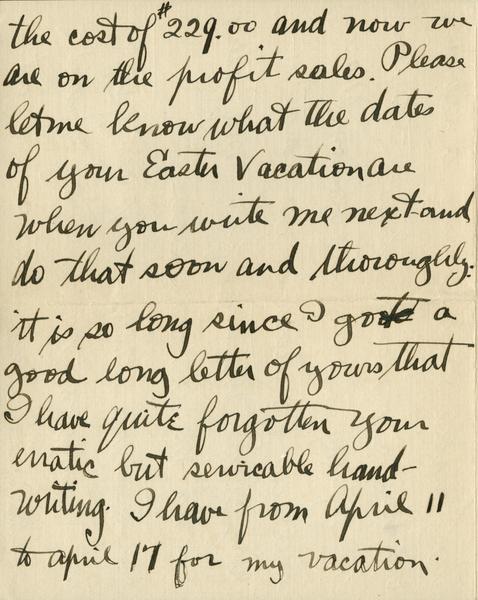 the cost of #229.00 and now we
are on the profit sales. Please
let me know what the dates
of your Easter Vacation are
when you write me next and
do that soon and thoroughly:
it is so long since I got a
good long letter of yours that
I have quite forgotten your
erratic but servicable hand-
writing. I have from April 11
to april 17 for my vacation.